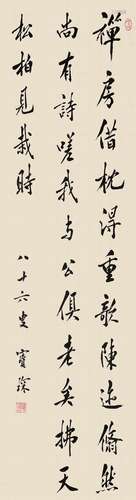 禪房借枕得重欹陳迹翛然
尚有詩嗟我与公俱老矣拂天
松柏見栽時
八十六叟 寶琛